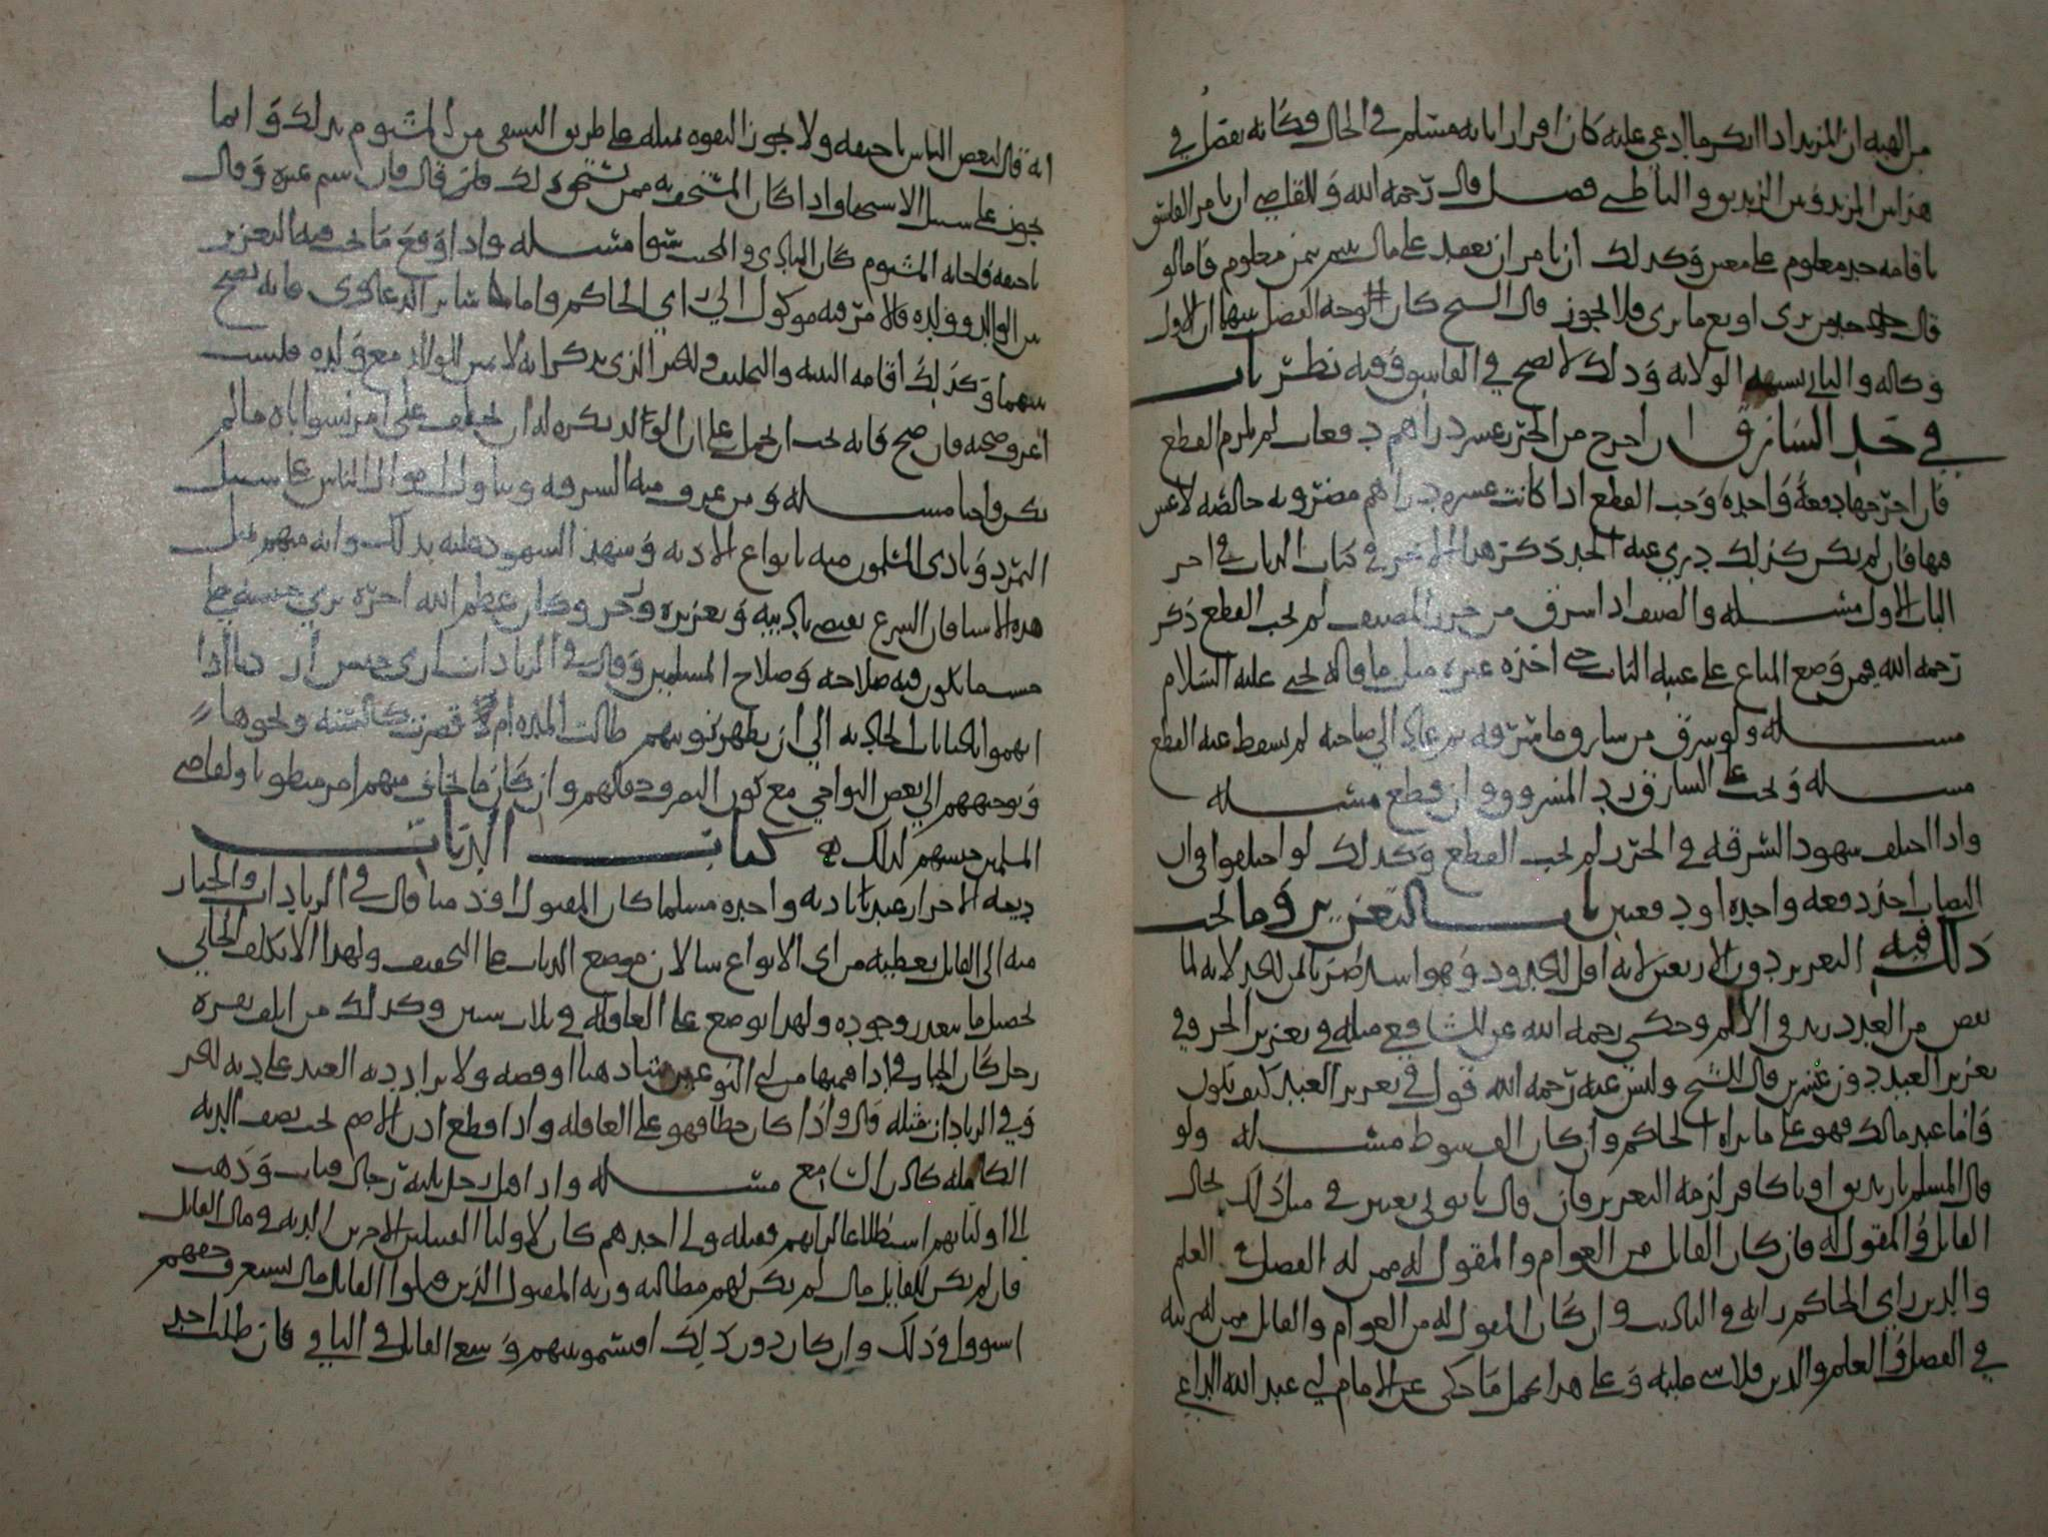 من الهيه ان المرتد اذا انكر ما ادعي عليه كان اقرارا بانه مسلم في الحال فكانه يفصل في
هذا بين المرتد وبين الزنديق والباطني فصل قال رحمه الله وللقاضي ان يامر الفاسق
باقامه حد معلوم على معين وكذلك ان يامر ان يعقد على مال بثمن معلوم فاما لو
قال حد من ترى او بع ما ترى فلا يجوز قال الشيخ كان الوجه الفصل بينهما ان الاول
وكاله والثاني يشبه الولايه وذلك لا يصح في الفاسق وفيه نظر باب
في حد السارق ان اخرج من الحرز عشر دراهم دفعات لم يلزم القطع
فان اخرجها دفعة واحدة وجب القطع اذا كانت عشره دراهم مضروبه خالصه لا غش
فيها فان لم يكن كذلك دري عنه الحد ذكر هذا الاخر في كتاب الديات في اخر
الباب الاول مسله والضيف اذا سرق من حرز المضيف لم يجب القطع ذكر
رحمه الله فيمن وضع المتاع على عتبه الباب حتى اخذه غيره مثل ما قاله يحيى عليه السلام
مسله ولو سرق من سارق ما سرقه ثم عاد الى صاحبه لم يسقط عنه القطع
مسله ويجب على السارق رد المسروق وان قطع مسله
واذا اختلف شهود السرقه في الحرز لم يجب القطع وكذلك لو اختلفوا في ان
النصاب اخذ دفعه واحده او دفعتين باب التعزير وما يجب
ذلك فيه التعزير دون الاربعين لانه اقل الحدود وهو اشد ضربا من الحد لانه لما
نقص من العدد زيد في الالم وحكي رحمه الله عن الشافعي مثله في تعزير الحر وفي
تعزير العبد دون عشرين قال الشيخ وليس عنه رحمه الله قول في تعزير العبد كيف يكون
فاما عند مالك فهو على ما يراه الحاكم وان كان الف سوط مسله ولو
قال لمسلم يا زنديق او يا كافر لزمه التعزير فان قال يا نوبي يعتبر في مثل ذلك بحال
القائل والمقول له فان كان القائل من العوام والمقول له ممن له الفضل في العلم
والدين راي الحاكم رايه في التاديب وان كان المقول له من العوام والقائل ممن له رتبه
في الفضل والعلم والدين فلا شي عليه وعلى هذا يحمل ما حكي عن الامام ابي عبد الله الداعي
انه قال لبعض الناس يا حيفه ولا يجوز التفوه بمثله على طريق التشفي من المشتوم بذلك وانما
يجوز على سبيل الاستخفاف واذا كان المستخف به ممن يستحق ذلك فلمن قال فان شتم غيره وقال
يا حيفه فاجابه المشتوم كان البادي والمجيب سوا مسله واذا وقع ما يجب فيه التعزير
بين الوالد وولده فالامر فيه موكول الى راي الحاكم واما سائر الدعاوى فانه يصح
بينهما وكذلك اقامه البينه والتحليف والخبر الذي يذكر انه لا يمين للوالد مع ولده فليست
اعرف صحته فان صح فانه يجب ان يحمل على ان الولد يكره له ان يحلف على امر يسوا اباه ما لم
يكن واجبا مسله ومن عرف منه السرقه وتناول اموال الناس على سبيل
التمرد وتاذى المسلمون منه بانواع الاذيه وشهد الشهود عليه بذلك وانه متهم بمثل
هذه الاشيا فان الشرع يقتضي تاديبه وتعزيره وزجره وكان عظم الله اجره يرى حبسه على
حسب ما يكون فيه صلاحه وصلاح المسلمين وقال في الزيادات ارى حبس ارباب اذا
اتهموا بالجنايات الحادثه الى ان يظهر توبتهم طالت المده ام قصرت كالسنه ونحوها
وتوجيههم الى بعض النواحي مع كون التمرد دمالهم وان كان ما يخاف منهم امر مظنونا ولقاضي
المسلمين حبسهم لذلك كتاب الديات
ديه الاحرار عندنا ديه واحده مسلما كان المقتول او ذميا قال في الزيادات والخيار
فيه الى القاتل يعطيه من اي الانواع شا لان موضع الديات على التخفيف ولهذا لا يكلف الجاني
تحصيل ما يتعذر وجوده ولهذا توضع على العاقله في ثلاث سنين وكذلك من اتلف نقره
رجل كان الخيار في ادا قيمتها من اي النوعين شا ذهبا او فضه ولا يزاد ديه العبد على ديه الحر
وفي الزيادات مثله قال واذا كان خطا فهو على العاقله واذا قطع اذن الاصم يجب نصف الديه
الكامله كاذن السامع مسله واذا قتل رجل ثلثه رجال فمات وذهب
الى اوليائهم استطلاعا لرايهم فقتله ولي احدهم كان لاوليا القتيلين الاخرين الديه في مال القاتل
فان لم يكن للقاتل مال لم يكن لهم مطالبه ورثه المقتول الذين قتلوا القاتل مال يستغرق حقهم
استووا في ذلك وان كان دون ذلك اقتسموه بينهم وتتبع القاتل في الباقي فان طلب احد